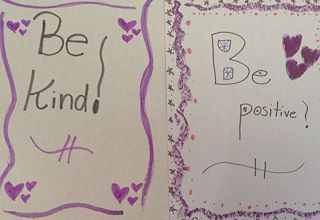 Be
Kind!
Be
positive?